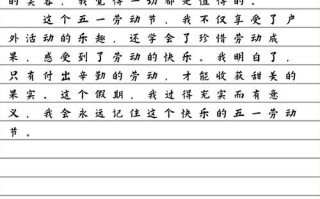 的笑容，我觉得一切都是值得的。
这个五一劳动节，我不仅享受了户
外活动的乐趣，还学会了珍惜劳动成
果，感受到了劳动的快乐。我明白了，
只有付出辛勤的劳动，才能收获甜美的
果实。这个假期，我过得充实而有意
义，我会永远记住这个快乐的五一劳动
节。